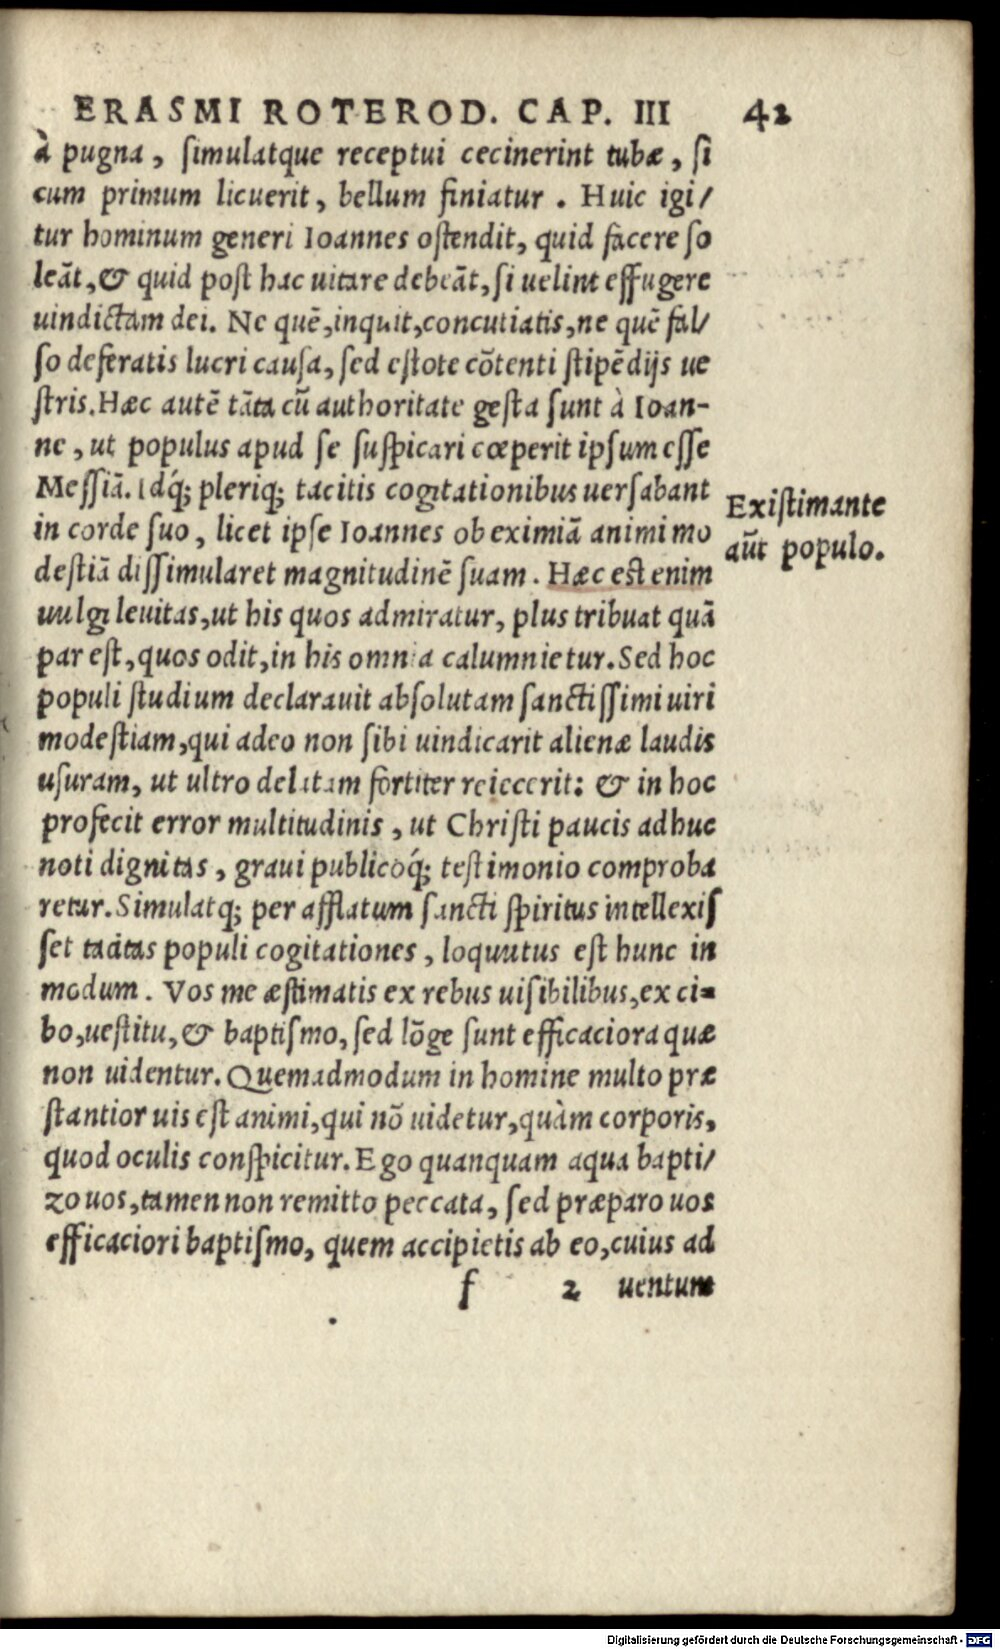 ERASMI ROTEROD. CAP. III 42
à pugna, simulatque receptui cecinerint tubæ, si
cum primum licuerit, bellum finiatur. Huic igi/
tur hominum generi Ioannes ostendit, quid facere so
leāt, & quid post hac uitare debeāt, si uelint effugere
uindictam dei. Ne quē, inquit, concutiatis, ne quē fal/
so deferatis lucri causa, sed estote cōtenti stipēdijs ue
stris. Hæc autē tāta cū authoritate gesta sunt à Ioan-
ne, ut populus apud se suspicari cœperit ipsum esse
Messiā. Idq́; pleriq; tacitis cogitationibus uersabant
in corde suo, licet ipse Ioannes ob eximiā animi mo
destiā dissimularet magnitudinē suam. Hæc est enim
uulgi leuitas, ut his quos admiratur, plus tribuat quā
par est, quos odit, in his omnia calumnietur. Sed hoc
populi studium declarauit absolutam sanctissimi uiri
modestiam, qui adeo non sibi uindicarit alienæ laudis
usuram, ut ultro delatam fortiter reiecerit: & in hoc
profecit error multitudinis, ut Christi paucis adhuc
noti dignitas, graui publicoq́; testimonio comproba
retur. Simulatq; per afflatum sancti spiritus intellexis
set tacitas populi cogitationes, loquutus est hunc in
modum. Vos me æstimatis ex rebus uisibilibus, ex ci-
bo, uestitu, & baptismo, sed lōge sunt efficaciora quæ
non uidentur. Quemadmodum in homine multo præ
stantior uis est animi, qui nō uidetur, quàm corporis,
quod oculis conspicitur. Ego quanquam aqua bapti/
zo uos, tamen non remitto peccata, sed præparo uos
efficaciori baptismo, quem accipietis ab eo, cuius ad
f 2 uentum
Existimante
aūt populo.
Digitalisierung gefördert durch die Deutsche Forschungsgemeinschaft - DFG